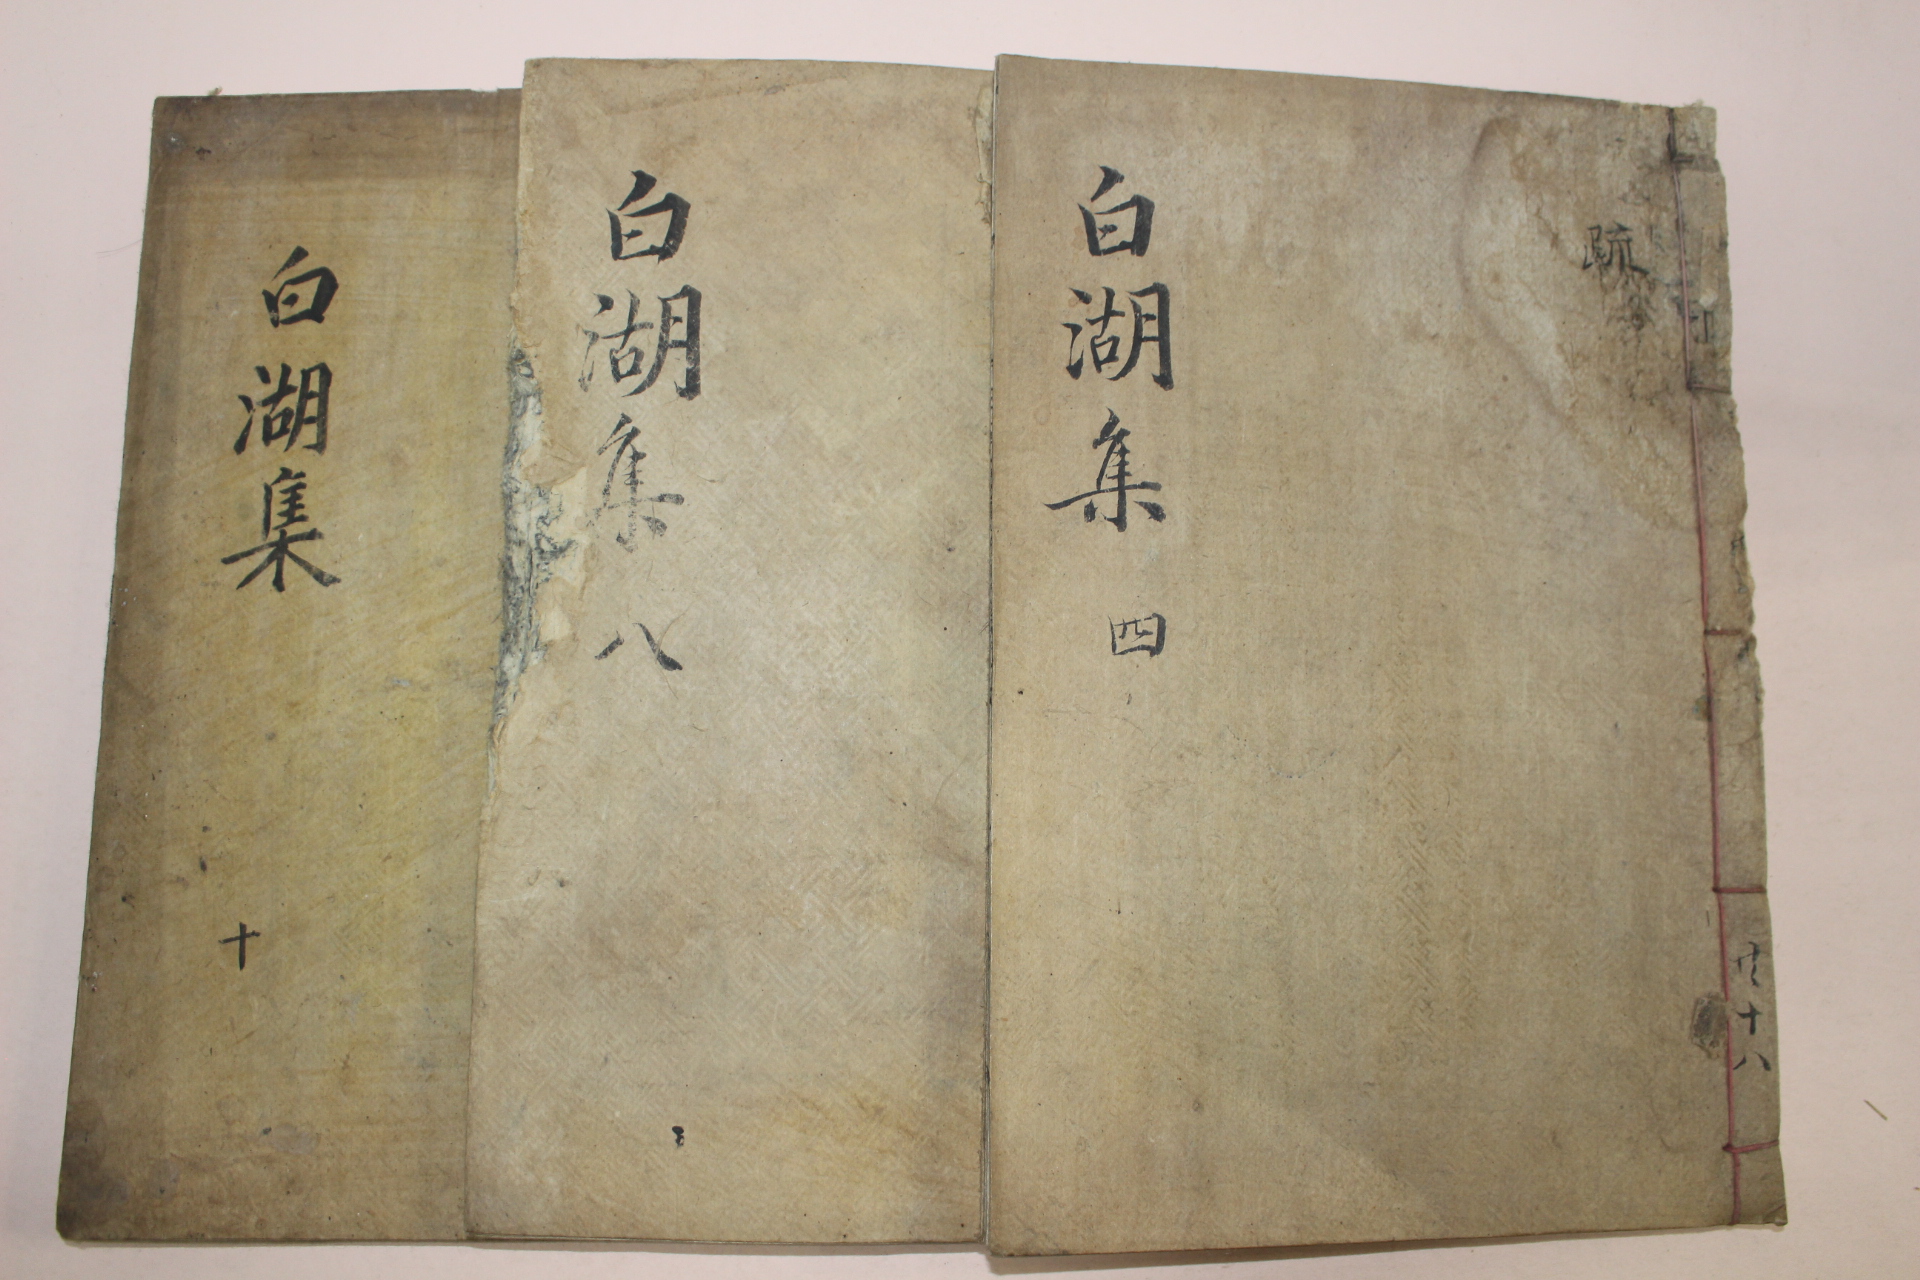 白湖集 四
疏
共十八
白湖集 八
白湖集 十